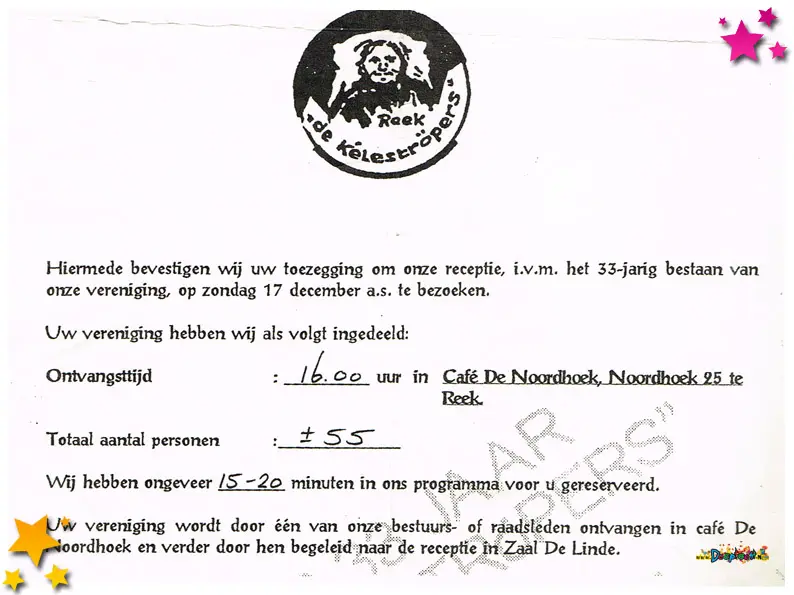 Reek
"de Kèleströpers"
Hiermede bevestigen wij uw toezegging om onze receptie, i.v.m. het 33-jarig bestaan van
onze vereniging, op zondag 17 december a.s. te bezoeken.
Uw vereniging hebben wij als volgt ingedeeld:
Ontvangsttijd : 16.00 uur in Café De Noordhoek, Noordhoek 25 te
Reek.
Totaal aantal personen : ± 55
Wij hebben ongeveer 15-20 minuten in ons programma voor u gereserveerd.
Uw vereniging wordt door één van onze bestuurs- of raadsleden ontvangen in café De
Noordhoek en verder door hen begeleid naar de receptie in Zaal De Linde.
JAAR